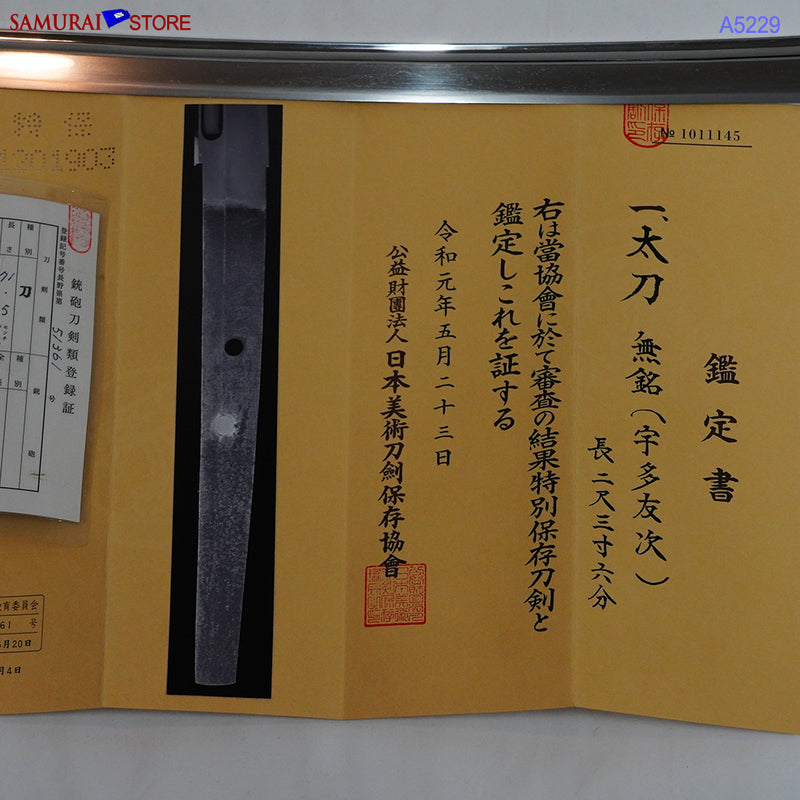 SAMURAI STORE
A5229
№ 1011145
鑑定書
一、太刀 無銘(宇多友次)
長二尺三寸六分
右は當協會に於て審査の結果特別保存刀剣と
鑑定しこれを証する
令和元年五月二十三日
公益財團法人 日本美術刀劍保存協會
銃砲刀剣類登録証
登録記号番号 長野県第 51361 号
刀剣類
銃砲
種別
刀
種別
長さ
71.5
センチ
全長
特保
1201903
育委員会
61 号
月20日
月4日